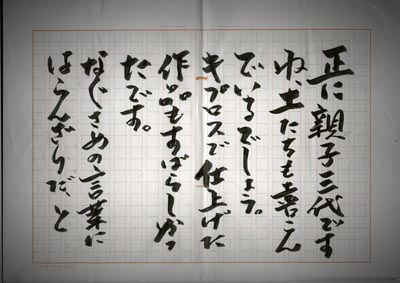 正に親子三代です
ね、土たちも喜こん
でいるでしょう。
キプロスで仕上げた
作品もすばらしかっ
たです。
なぐさめの言葉に
はうんざりだ、と